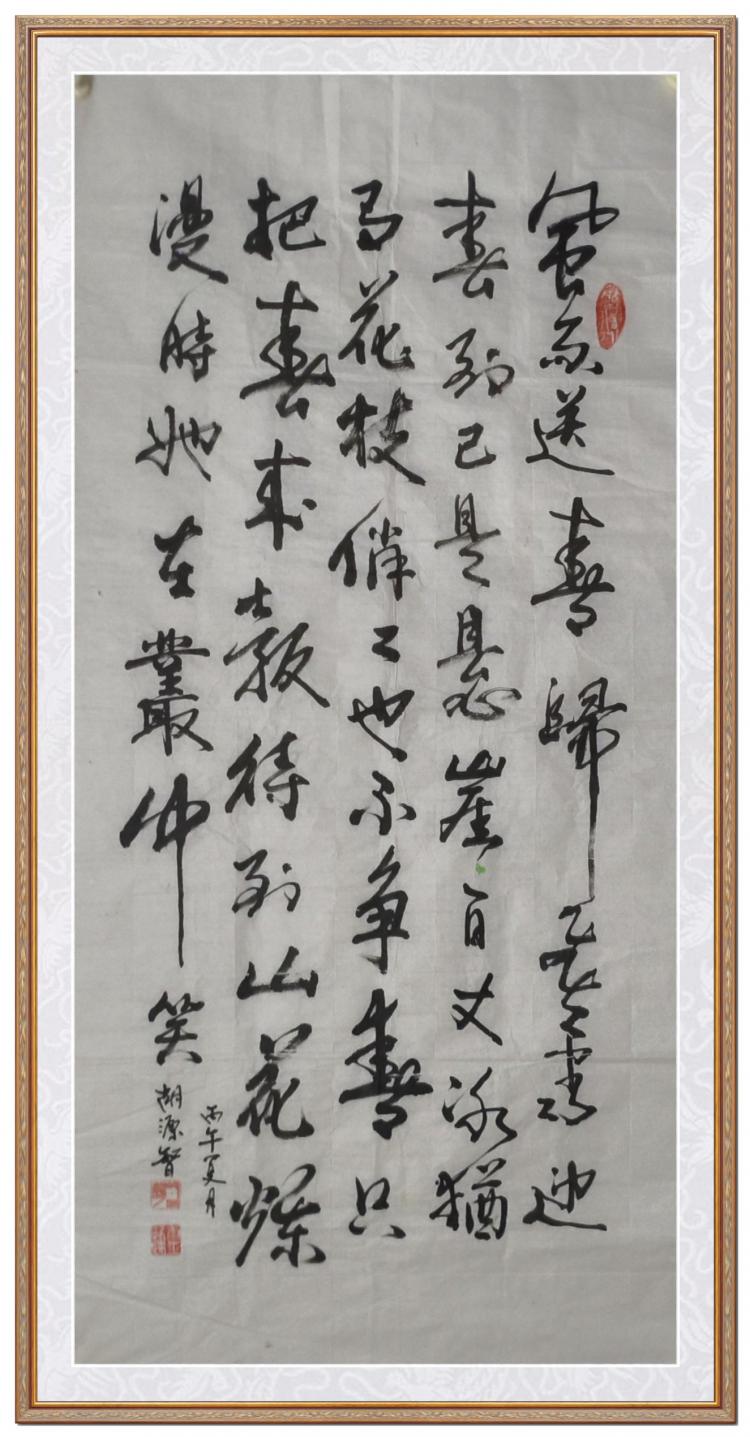 風雨送春歸飛雪迎
春到已是悬崖百丈冰猶
有花枝俏〻也不争春只
把春来報待到山花爛
漫時她在叢中笑
丙午夏月
胡源智